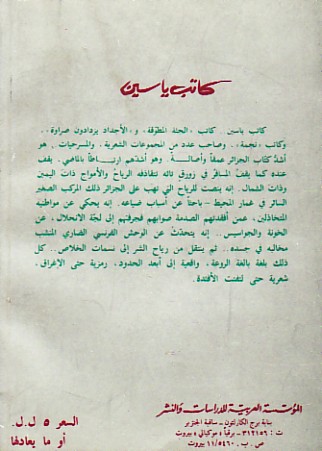 كاتب ياسين
كاتب ياسين.. كاتب، «الجثة المطوّقة»، و«الأجداد يزدادون ضراوة»..
وكاتب «نجمة»، وصاحب عدد من المجموعات الشعرية، والمسرحيات، هو
أشدّ كتّاب الجزائر عمقاً وأصالة.. وهو أشدّهم ارتباطاً بالماضي. يقف
عنده كما يقف المسافر في زورق تائه تتقاذفه الرياح والأمواج ذات اليمين
وذات الشمال. إنه ينصت للرياح التي تهب على الجزائر ذلك المركب الصغير
السائر في غمار المحيط - باحثاً عن أسباب ضياعه. إنه يحكي عن مواطنيه
المتخاذلين، عمن أفقدتهم الصدمة صوابهم فجرفتهم إلى لجّة الانحلال، عن
الخونة والجواسيس.. إنه يتحدّث عن الوحش الفرنسي الضاري المنشب
مخالبه في جسده.. ثم ينتقل من رياح الشر إلى نسمات الخلاص.. كل
ذلك بلغة بالغة الروعة، واقعية إلى أبعد الحدود، رمزية حتى الإغراق،
شعرية حتى لتفتت الأفئدة.
المؤسسة العربية للدراسات والنشر
بناية برج الكارلتون - ساقية الجنزير
ت: ٣١٢١٥٦ - برقياً: موكيالي، بيروت
ص.ب. ١١/٥٤٦٠ بيروت
السعر ٥ ل.ل.
أو ما يعادلها